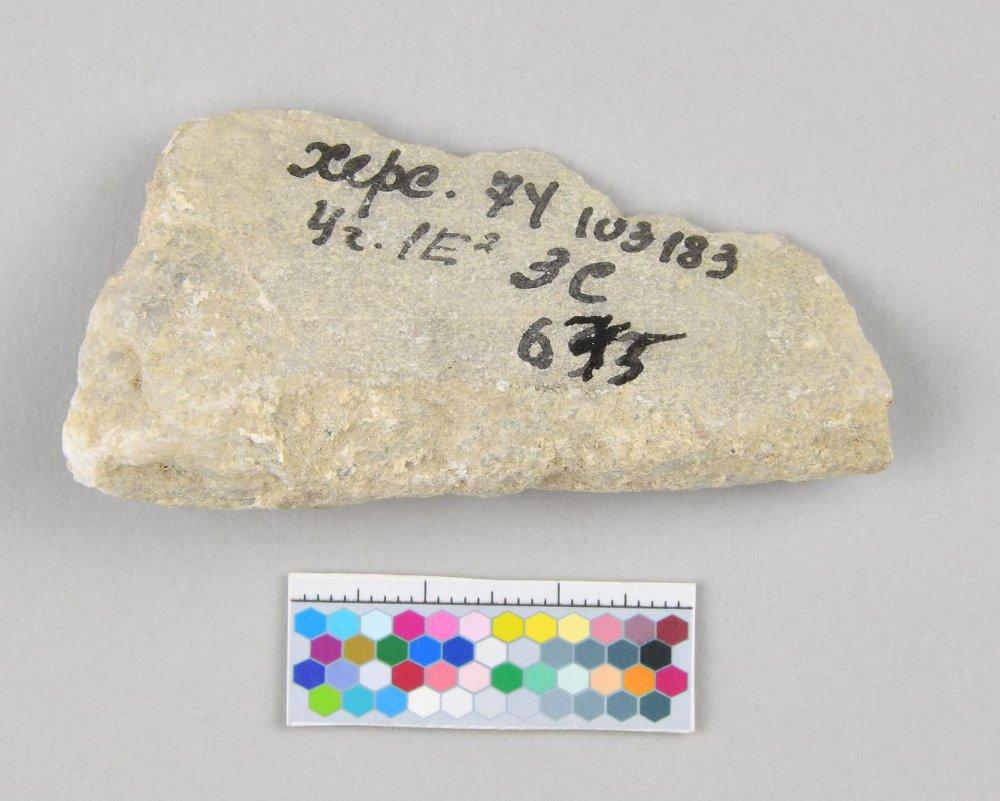 херс. 74 103183
Уг. 1Е² 3С
6 5